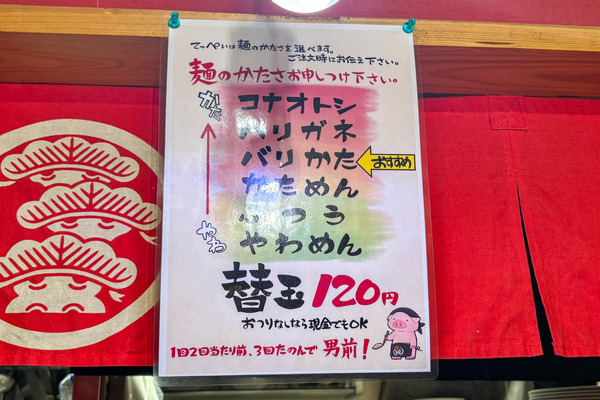 てっぺいは麺のかたさを選べます。
ご注文時にお伝え下さい。
麺のかたさお申しつけ下さい。
かた
コナオトシ
ハリガネ
バリかた
おすすめ
かためん
ふつう
やわ
やわめん
替玉120円
おつりなしなら現金でもOK
1回2回当たり前、3回たのんで男前!